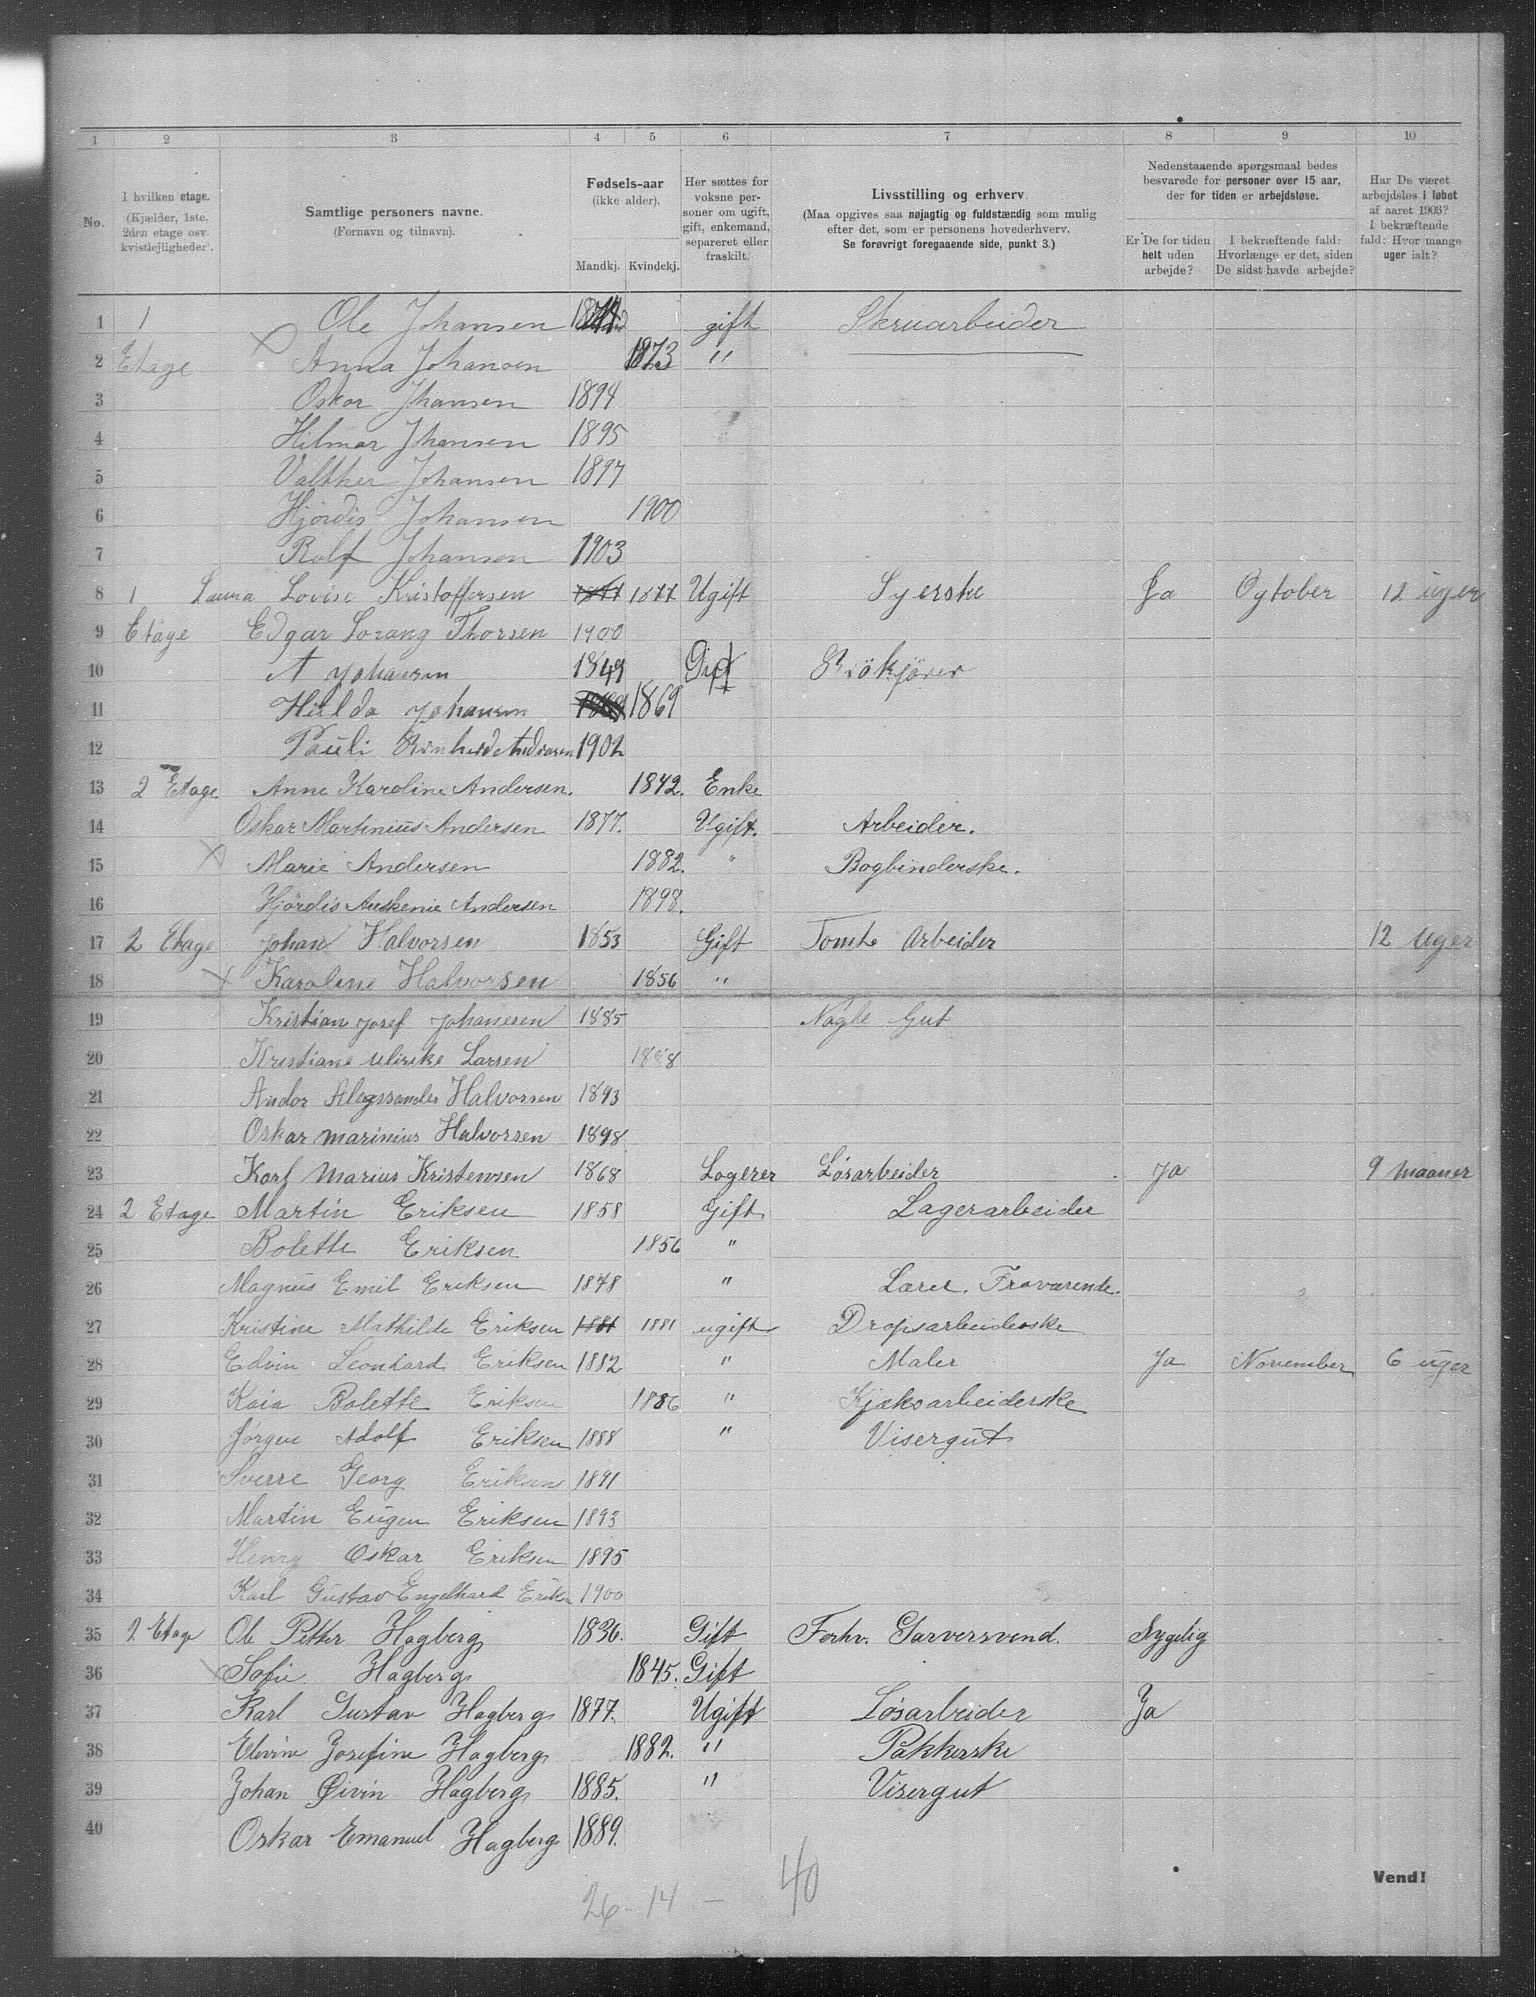 1 2 3 4 5 6 7 8 9 10
No.
I hvilken etage.
(Kjælder, 1ste,
2den etage osv.
kvistlejligheder).
Samtlige personers navne.
(Fornavn og tilnavn).
Fødsels-aar
(ikke alder).
Mandkj. Kvindekj.
Her sættes for
voksne per-
soner om ugift,
gift, enkemand,
separeret eller
fraskilt.
Livsstilling og erhverv
(Maa opgives saa nøjagtig og fuldstændig som mulig
efter det, som er personens hovederhverv.
Se forøvrigt foregaaende side, punkt 3.)
Nedenstaaende spørgsmaal bedes
besvarede for personer over 15 aar,
der for tiden er arbejdsløse.
Er De for tiden
helt uden
arbejde?
I bekræftende fald:
Hvorlænge er det, siden
De sidst havde arbejde?
Har De været
arbejdsløs i løbet
af aaret 1903?
I bekræftende
fald: Hvor mange
uger ialt?
1 1 Ole Johansen gift Skruarbeider
2 Etage Anna Johansen 1873 "
3 Oskar Jhansen 1894
4 Hilmar Jhansen 1895
5 Valther Johansen 1897
6 Hjørdis Johansen 1900
7 Rolf Johansen 1903
8 1 Laura Lovise Kristoffersen 1877 Ugift Syerske Ja Oytober 12 uger
9 Etage Edgar Sorang Thorsen 1900
10 A Johansen 1849 Gift
11 Hulda Johansen 1869
12 Pauli 1902
13 2 Etage Anne Karoline Andersen. 1842. Enke
14 Oskar Martinius Andersen 1877. Ugift. Arbeider.
15 Marie Andersen 1882. " Bogbinderske.
16 Hjørdis Auskenie Andersen 1898.
17 2 Etage Johan Halvorsen 1853 Gift Tomte Arbeider 12 Uger
18 Karoline Halvorsen 1856 "
19 Kristian Josef Johanesen 1885 Nagle Gut
20 Kristiane Ulrike Larsen
21 Andor Alegsander Halvorsen 1893
22 Oskar Marinius Halvorsen 1898
23 Karl Marius Kristensen 1868 Logerer Løsarbeider Ja 9 Maaner
24 2 Etage Martin Eriksen 1858 Gift Lagerarbeider
25 Bolette Eriksen 1856 "
26 Magnus Emil Eriksen 1878 " Lærer. Fraværende.
27 Kristine Mathilde Eriksen 1881 1881 ugift Dropsarbeiderske
28 Edvin Leonhard Eriksen 1882 " Maler Ja November 6 uger
29 Kaia Bolette Eriksen 1886 " Kjæksarbeiderske
30 Jørgen Adolf Eriksen 1888 " Visergut
31 Sverre Georg Eriksen 1891
32 Martin Eugen Eriksen 1893
33 Henry Oskar Eriksen 1895
34 Karl Gustav Engelhard Eriksen 1900
35 2 Etage Ole Petter Hagberg 1836. Gift Forhv. Garversvend. Sygelig
36 Sofie Hagberg 1845. Gift
37 Karl Gustav Hagberg 1877. Ugift Løsarbeider Ja
38 Elevine Josefine Hagberg 1882. " Pakkerske
39 Johan Øivin Hagberg 1885. " Visergut
40 Oskar Emanuel Hagberg 1889.
26 - 14 - 40
Vend!